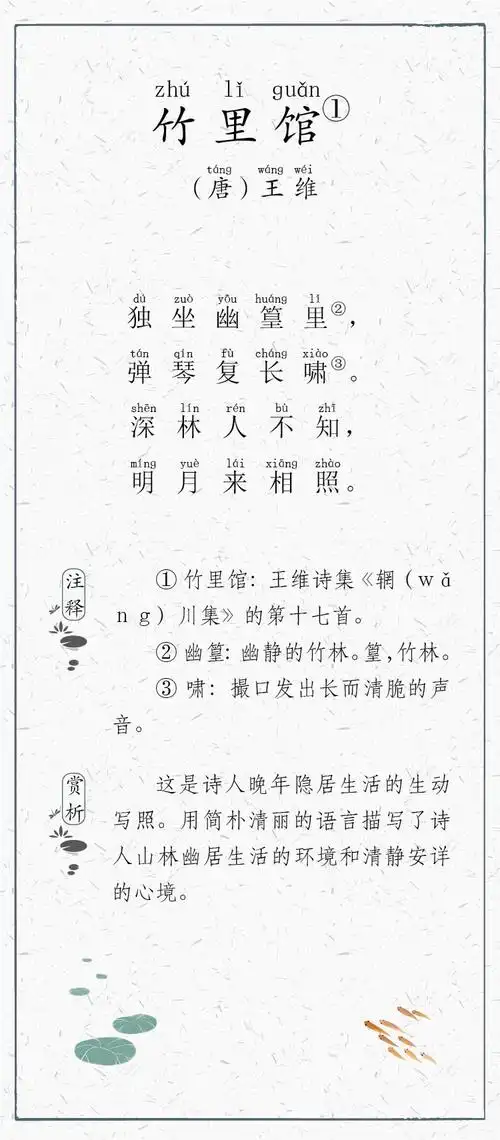 zhú lǐ guǎn
竹里馆①
táng wáng wéi
（唐）王维
dú zuò yōu huáng lǐ
独坐幽篁里②，
tán qín fù cháng xiào
弹琴复长啸③。
shēn lín rén bù zhī
深林人不知，
míng yuè lái xiāng zhào
明月来相照。
注释
①竹里馆：王维诗集《辋（wǎ
ng）川集》的第十七首。
②幽篁：幽静的竹林。篁，竹林。
③啸：撮口发出长而清脆的声
音。
赏析
这是诗人晚年隐居生活的生动
写照。用简朴清丽的语言描写了诗
人山林幽居生活的环境和清静安详
的心境。